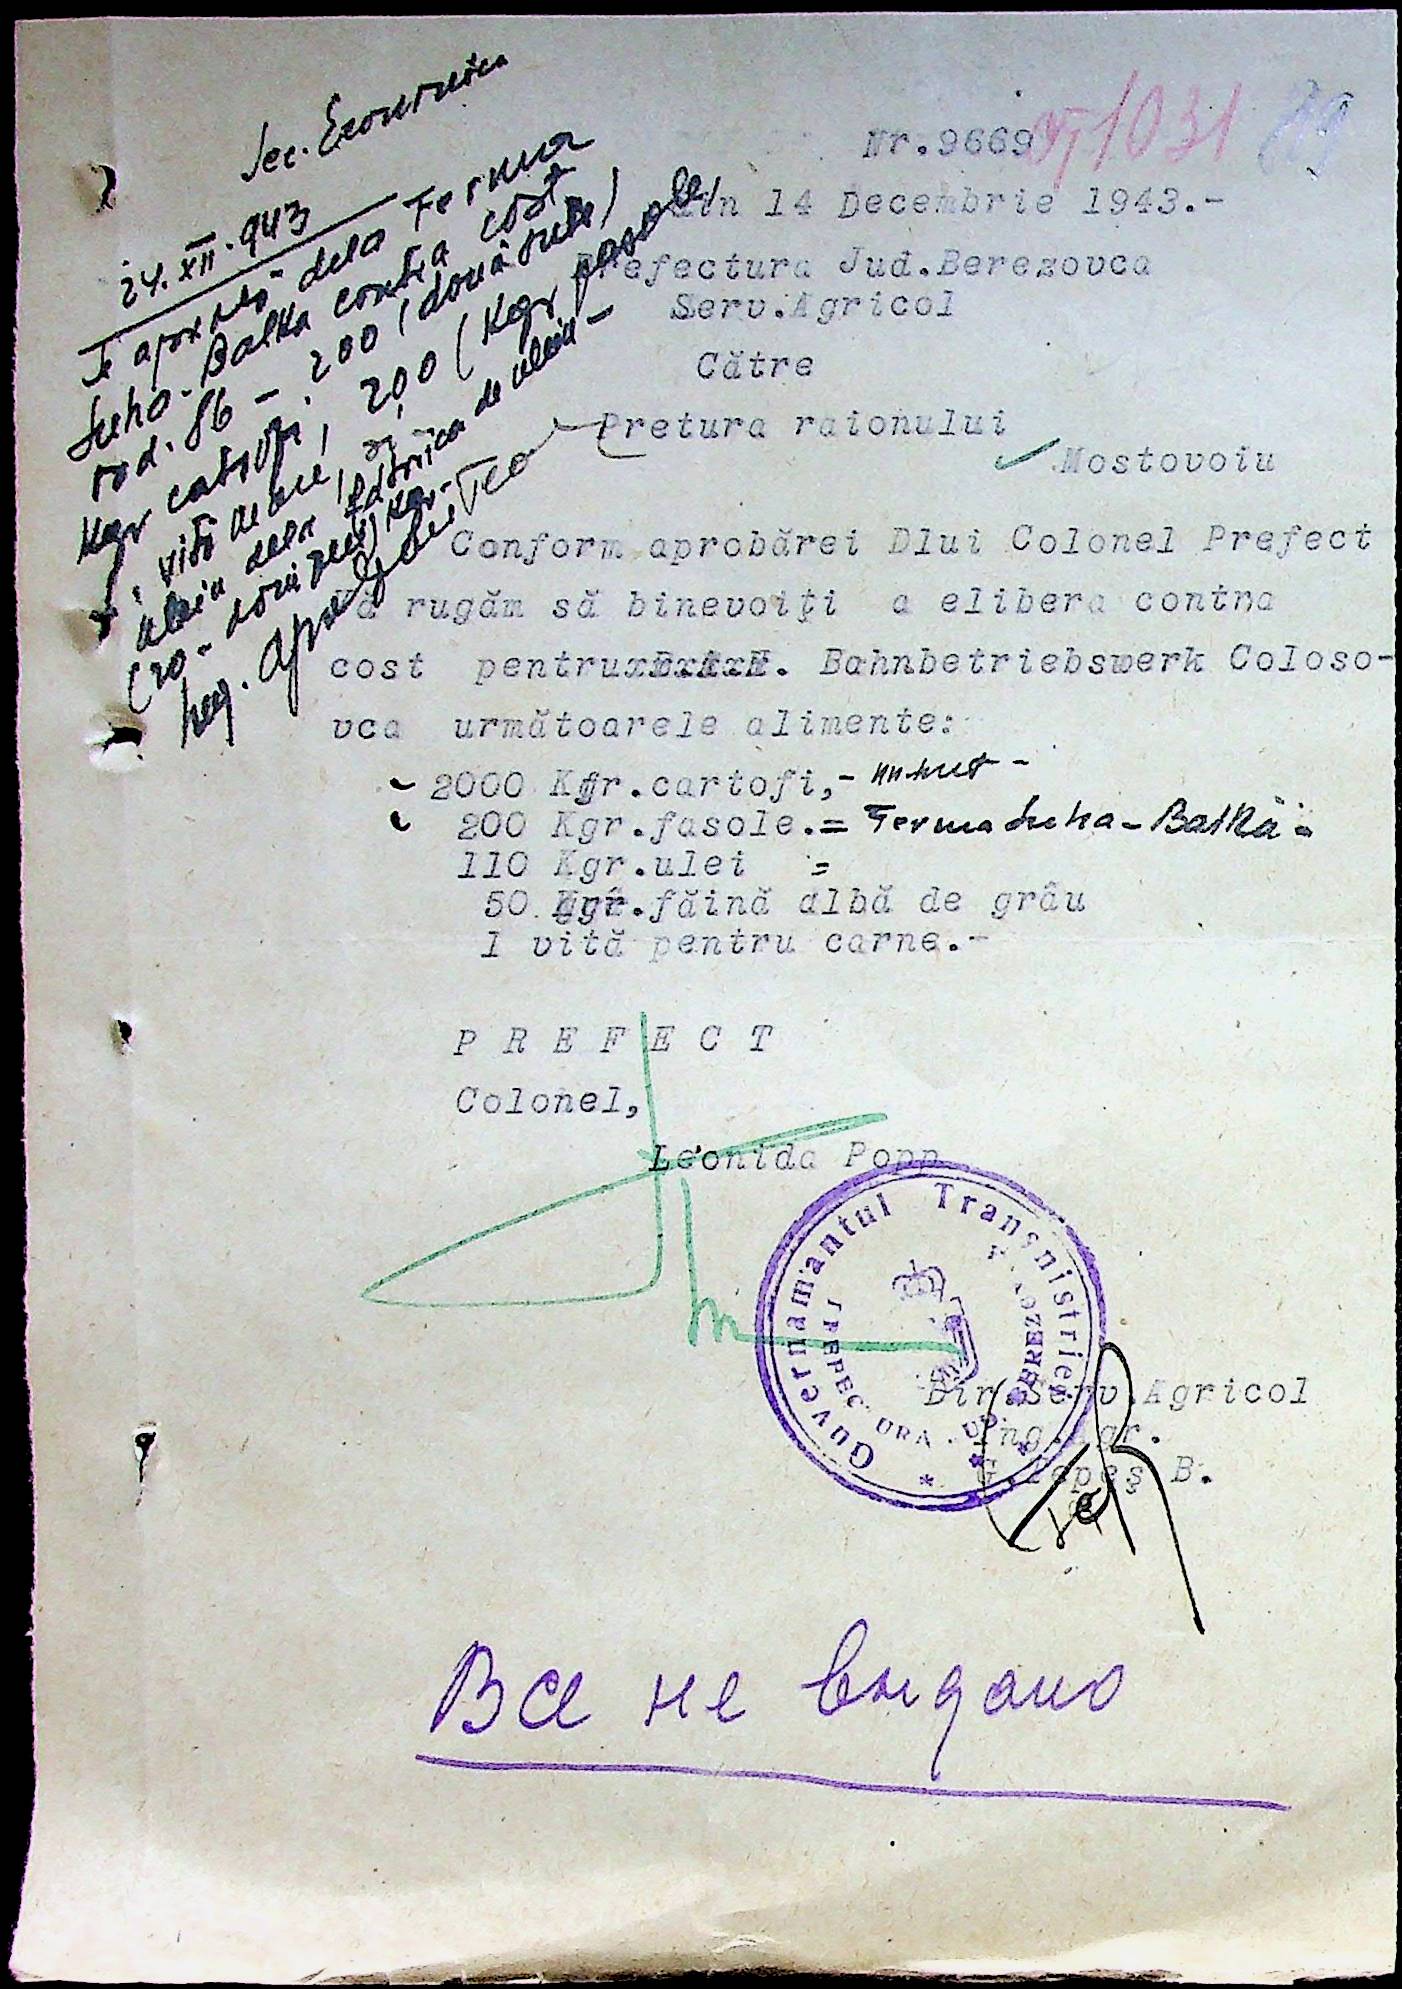 Sec. Economica
24.XII.943
Se aprobă dela Ferma
Suho-Balka contra cost
rod. 86 - 200 (două sute)
Kgr cartofi, 200 (Kgr fasole)
1 vită
ulei dela fabrica de uleiu -
(20 - Kgr.
Nr.9669 1031 89
din 14 Decembrie 1943.-
Prefectura Jud.Berezovca
Serv.Agricol
Către
Pretura raionului
Mostovoiu
Conform aprobărei Dlui Colonel Prefect
Vă rugăm să binevoiţi a elibera contra
cost pentru Bahnbetriebswerk Coloso-
vca următoarele alimente:
2000 Kgr.cartofi,-
200 Kgr.fasole.= Ferma Suha-Balkă-
110 Kgr.ulei =
50 Kgr.făină albă de grâu
1 vită pentru carne.-
P R E F E C T
Colonel,
Leonida Popp
Guvernamantul Transnistriei
PREFECTURA JUD. BEREZOVCA
Dir.Serv.Agricol
Ing.Agr.
G.Ţepeş B.
Все не выдано